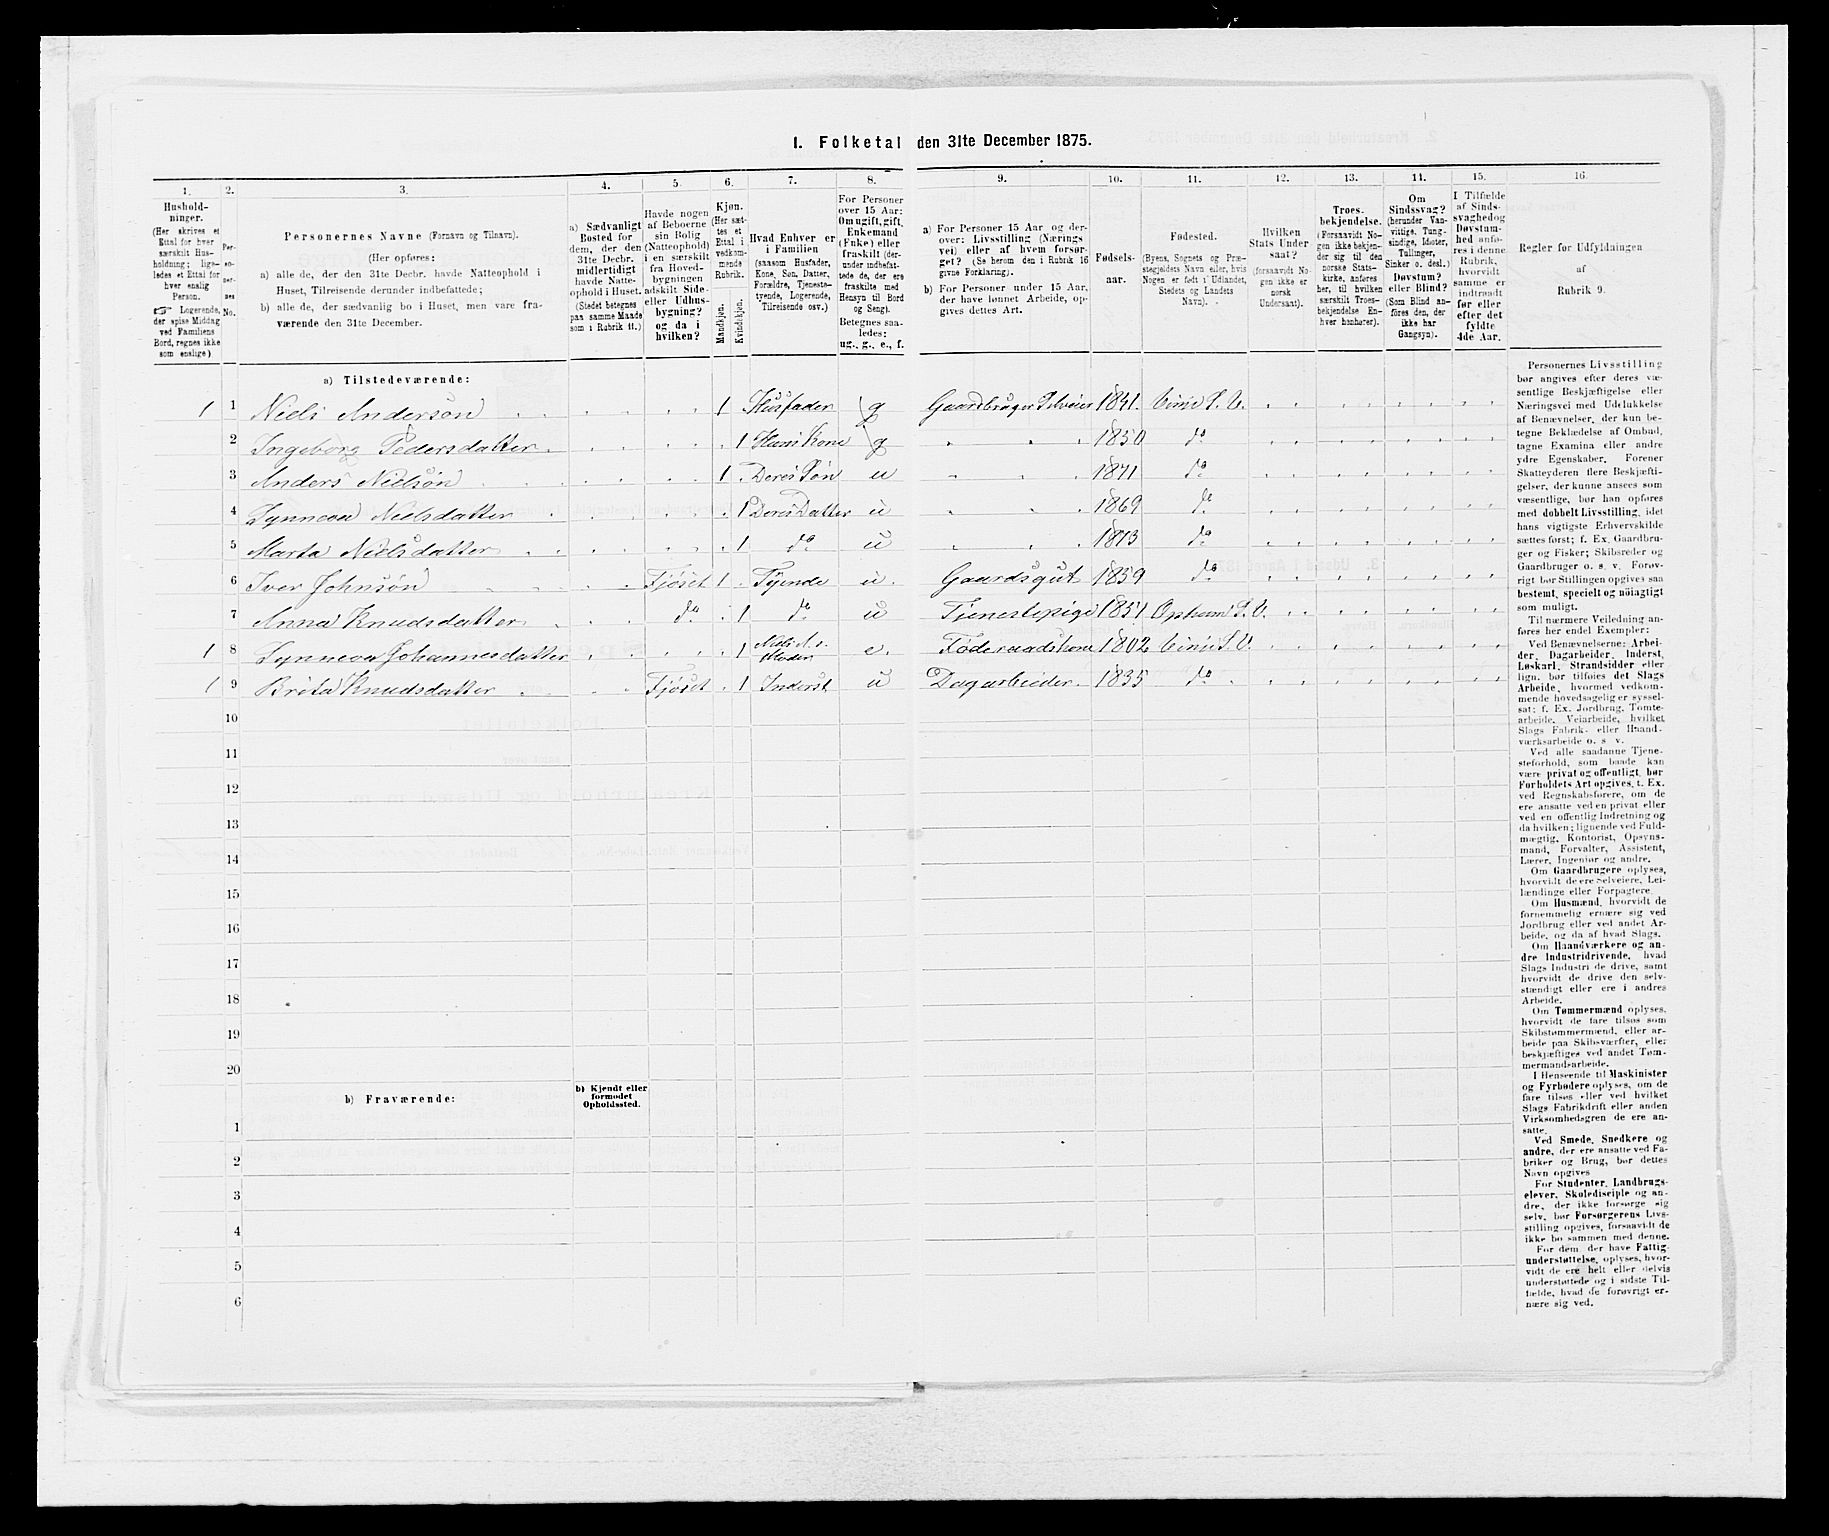 1. Folketal den 31te December 1875.
1. 2. 3. 4. 5. 6. 7. 8. 9. 10. 11. 12. 13. 14. 15. 16.
Hushold-
ninger.
(Her skrives et
Ettal for hver
særskilt Hus-
holdning; lige-
ledes et Ettal for
hver enslig
Person.
☞ Logerende,
der spise Middag
ved Familiens
Bord, regnes ikke
som enslige)
Per-
so-
ner-
nes
No.
Personernes Navne (Fornavn og Tilnavn).
(Her opføres:
a) alle de, der den 31te Decbr. havde Natteophold i
Huset, Tilreisende derunder indbefattede;
b) alle de, der sædvanlig bo i Huset, men vare fra-
værende den 31te December.
a) Sædvanligt
Bosted for
dem, der den
31te Decbr.
midlertidigt
havde Natte-
ophold i Huset.
(Stedet betegnes
paa samme Maade
som i Rubrik 11.)
Havde nogen
af Beboerne
sin Bolig
(Natteophold)
i en særskilt
fra Hoved-
bygningen
adskilt Side-
eller Udhus-
bygning?
og da i
hvilken?
Kjøn.
(Her sæt-
tes et
Ettal i
vedkom-
mende
Rubrik.
Mandkjøn.
Kvindekjøn.
Hvad Enhver er
i Familien
(saasom Husfader,
Kone, Søn, Datter,
Forældre, Tjeneste-
tyende, Logerende,
Tilreisende osv.)
For Personer
over 15 Aar:
Om ugift, gift,
Enkemand
(Enke) eller
fraskilt (der-
under indbefat-
tede de, der ere
fraskilte med
Hensyn til Bord
og Seng).
Betegnes saa-
ledes:
ug., g., e., f.
a) For Personer 15 Aar og der-
over: Livsstilling (Nærings-
vei) eller af hvem forsør-
get? (Se herom den i Rubrik 16
givne Forklaring).
b) For Personer under 15 Aar,
der have lønnet Arbeide, op-
gives dettes Art.
Fødsels-
aar.
Fødested.
(Byens, Sognets og Præ-
stegjeldets Navn eller, hvis
Nogen er født i Udlandet,
Stedets og Landets
Navn).
Hvilken
Stats Under
saat?
(forsaavidt No-
gen ikke er
norsk
Undersaat).
Troes-
bekjendelse.
(Forsaavidt No-
gen ikke bekjen-
der sig til den
norske Stats-
kirke, anføres
her, til hvilken
særskilt Troes-
bekjendelse En-
hver henhører).
Om
Sindssvag?
(herunder Van-
vittige, Tung-
sindige, Idioter,
Tullinger,
Sinker o. desl.)
Døvstum?
eller Blind?
(Som Blind an-
føres den, der
ikke har
Gangsyn).
I Tilfælde
af Sinds-
svaghed og
Døvstum-
hed anfø-
res i denne
Rubrik,
hvorvidt
samme er
indtraadt
før eller
efter det
fyldte
4de Aar.
Regler før Udfyldningen
af
Rubrik 9.
a) Tilstedeværende:
1 1 Niels Anderson 1 Husfader g Gaardbruger Selveier 1841. Vinje S. V.
2 Ingeborg Pedersdatter 1 Hans Kone g 1850 do
3 Anders Nielsøn 1 Deres Søn u 1871 do
4 Synneva Nielsdatter 1 Deres Datter u 1869 do
5 Marta Nielsdatter 1 do u 1873 do
6 Iver Johnsøn Fjøset 1 Tyende u. Gaardsgut 1859 do
7 Anna Knudsdatter do 1 do u Tjenestepige 1851 Opheim S. V.
1 8 Synneva Johannesdatter 1 Niels A. s Moder e. Føderaadskone 1802 Vinje S. V.
1 9 Brita Knudsdatter Fjøset 1 Inderst u Dagarbeider. 1835 do
10
11
12
13
14
15
16
17
18
19
20
b) Fraværende:
b) Kjendt eller
formodet
Opholdssted.
1
2
3
4
5
6
Personernes Livsstilling
bør angives efter deres væ-
sentlige Beskjæftigelse eller
Næringsvei med Udelukkelse
af Benævnelser, der kun be-
tegne Beklædelse af Ombud,
tagne Examina eller andre
ydre Egenskaber. Forener
Skatteyderen flere Beskjæfti-
gelser, der kunne ansees som
væsentlige, bør han opføres
med dobbelt Livsstilling, idet
hans vigtigste Erhvervskilde
sættes først; f. Ex. Gaardbru-
ger og Fisker; Skibsreder og
Gaardbruger o. s. v. Forøv-
rigt bør Stillingen opgives saa
bestemt, specielt og nöiagtigt
som muligt.
Til nærmere Veiledning an-
føres her endel Exempler:
Ved Benævnelserne: Arbei-
der, Dagarbeider, Inderst,
Løskarl, Strandsidder eller
lign. bør tilføies det Slags
Arbeide, hvormed vedkom-
mende hovedsagelig er syssel-
sat; f. Ex. Jordbrug, Tomte-
arbeide, Veiarbeide, hvilket
Slags Fabrik- eller Haand-
værksarbeide o. s. v.
Ved alle saadanne Tjene-
steforhold, som baade kan
være privat og offentligt, bør
Forholdets Art opgives, t. Ex.
ved Regnskabsførere, om de
ere ansatte ved en privat eller
ved en offentlig Indretning og
da hvilken; lignende ved Fuld-
mægtig, Kontorist, Opsyns-
mand, Forvalter, Assistent,
Lærer, Ingeniør og andre.
Om Gaardbrugere oplyses,
hvorvidt de ere Selveiere, Lei-
lændinge eller Forpagtere.
Om Husmænd, hvorvidt de
fornemmelig ernære sig ved
Jordbrug eller ved andet Ar-
beide, og da af hvad Slags.
Om Haandværkere og an-
dre Industridrivende, hvad
Slags Industri de drive, samt
hvorvidt de drive den selv-
stændigt eller ere i andres
Arbeide.
Om Tømmermænd oplyses,
hvorvidt de fare tilsøs som
Skibstømmermænd, eller ar-
beide paa Skibsværfter, eller
beskjæftiges ved andet Tøm-
mermandsarbeide.
I Henseende til Maskinister
og Fyrbødere oplyses, om de
fare tilsøs eller ved hvilket
Slags Fabrikdrift eller anden
Virksomhedsgren de ere an-
satte.
Ved Smede, Snedkere og
andre, der ere ansatte ved Fa-
briker og Brug, bør dettes
Navn opgives
For Studenter, Landbrugs-
elever, Skoledisciple og an-
dre, der ikke forsørge sig
selv, bør Forsørgerens Livs-
stilling opgives, forsaavidt de
ikke bo sammen med denne.
For dem, der have Fattig-
understøttelse, oplyses, hvor-
vidt de ere helt eller delvis
understøttede og i sidste Til-
fælde, hvad de forøvrigt er-
nære sig ved.